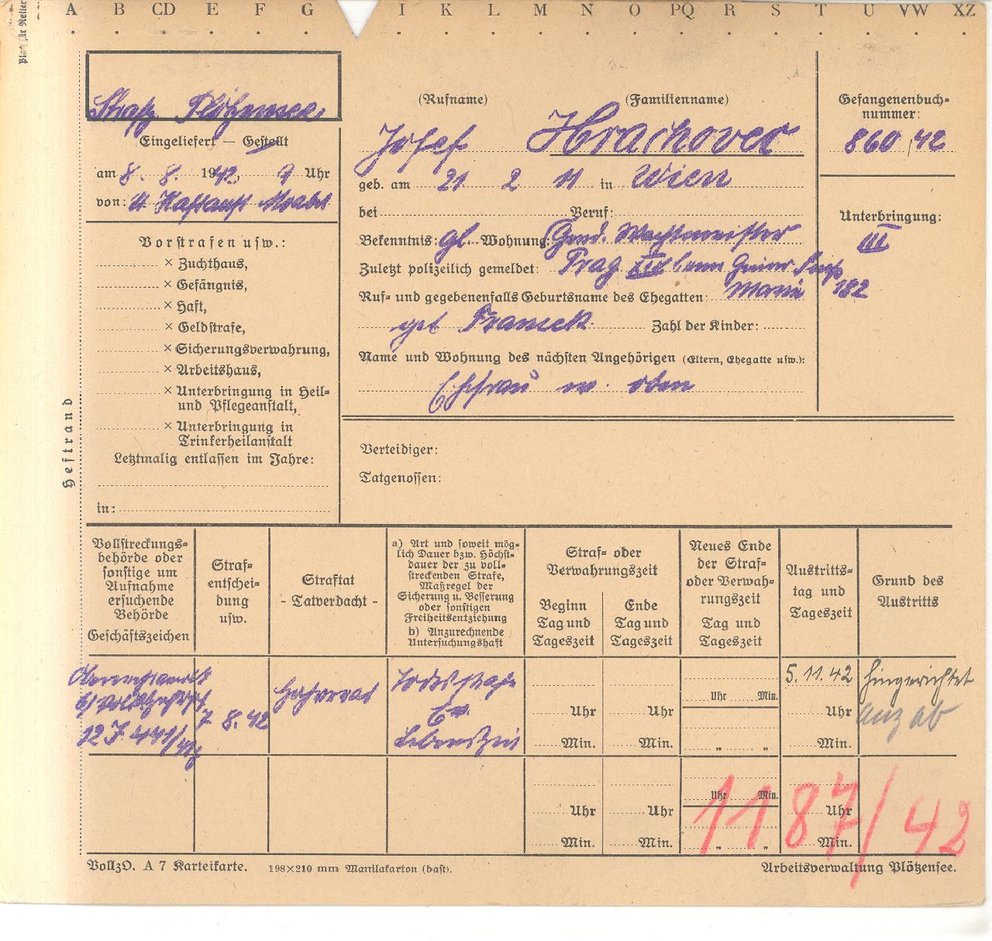 A B CD E F G I K L M N O PQ R S T U VW XZ
Strafg Plötzensee
Eingeliefert — Gestellt
am 8. 8. 1942, 9 Uhr
von: U Haftanst Moabit
Vorstrafen usw.:
× Zuchthaus,
× Gefängnis,
× Haft,
× Geldstrafe,
× Sicherungsverwahrung,
× Arbeitshaus,
× Unterbringung in Heil-
und Pflegeanstalt,
× Unterbringung in
Trinkerheilanstalt
Letztmalig entlassen im Jahre:
in:
Heftrand
(Rufname) (Familienname)
Josef Hrachovec
geb. am 21 2 11 in Wien
bei Beruf:
Bekenntnis: gl. Wohnung: Gend. Wachtmeister
Zuletzt polizeilich gemeldet: Prag XIX
182
Ruf- und gegebenenfalls Geburtsname des Ehegatten: Marie
geb Zahl der Kinder:
Name und Wohnung des nächsten Angehörigen (Eltern, Ehegatte usw.):
Ehefrau w. oben
Gefangenenbuch-
nummer:
860/42
Unterbringung:
III
Verteidiger:
Tatgenossen:
Vollstreckungs-
behörde oder
sonstige um
Aufnahme
ersuchende
Behörde
Geschäftszeichen
Straf-
entschei-
dung
usw.
Straftat
- Tatverdacht -
a) Art und soweit mög-
lich Dauer bzw. Höchst-
dauer der zu voll-
streckenden Strafe,
Maßregel der
Sicherung u. Besserung
oder sonstigen
Freiheitsentziehung
b) Anzurechnende
Untersuchungshaft
Straf- oder
Verwahrungszeit
Beginn
Tag und
Tageszeit
Ende
Tag und
Tageszeit
Neues Ende
der Straf-
oder Verwah-
rungszeit
Tag und
Tageszeit
Austritts-
tag und
Tageszeit
Grund des
Austritts
Oberreichsanwalt
b/Volksgerichtsh
12 J 441/41g
7 8. 42
Hochverrat
Todesstrafe
Ev.
Lebenszeit
Uhr
Min.
Uhr
Min.
Uhr Min.
" "
5. 11. 42
Uhr
Min.
hingerichtet
anz ab
Uhr
Min.
Uhr
Min.
Uhr Min.
" "
Uhr
Min.
1187/42
VollzO. A 7 Karteikarte. 198×210 mm Manilakarton (bast). Arbeitsverwaltung Plötzensee.